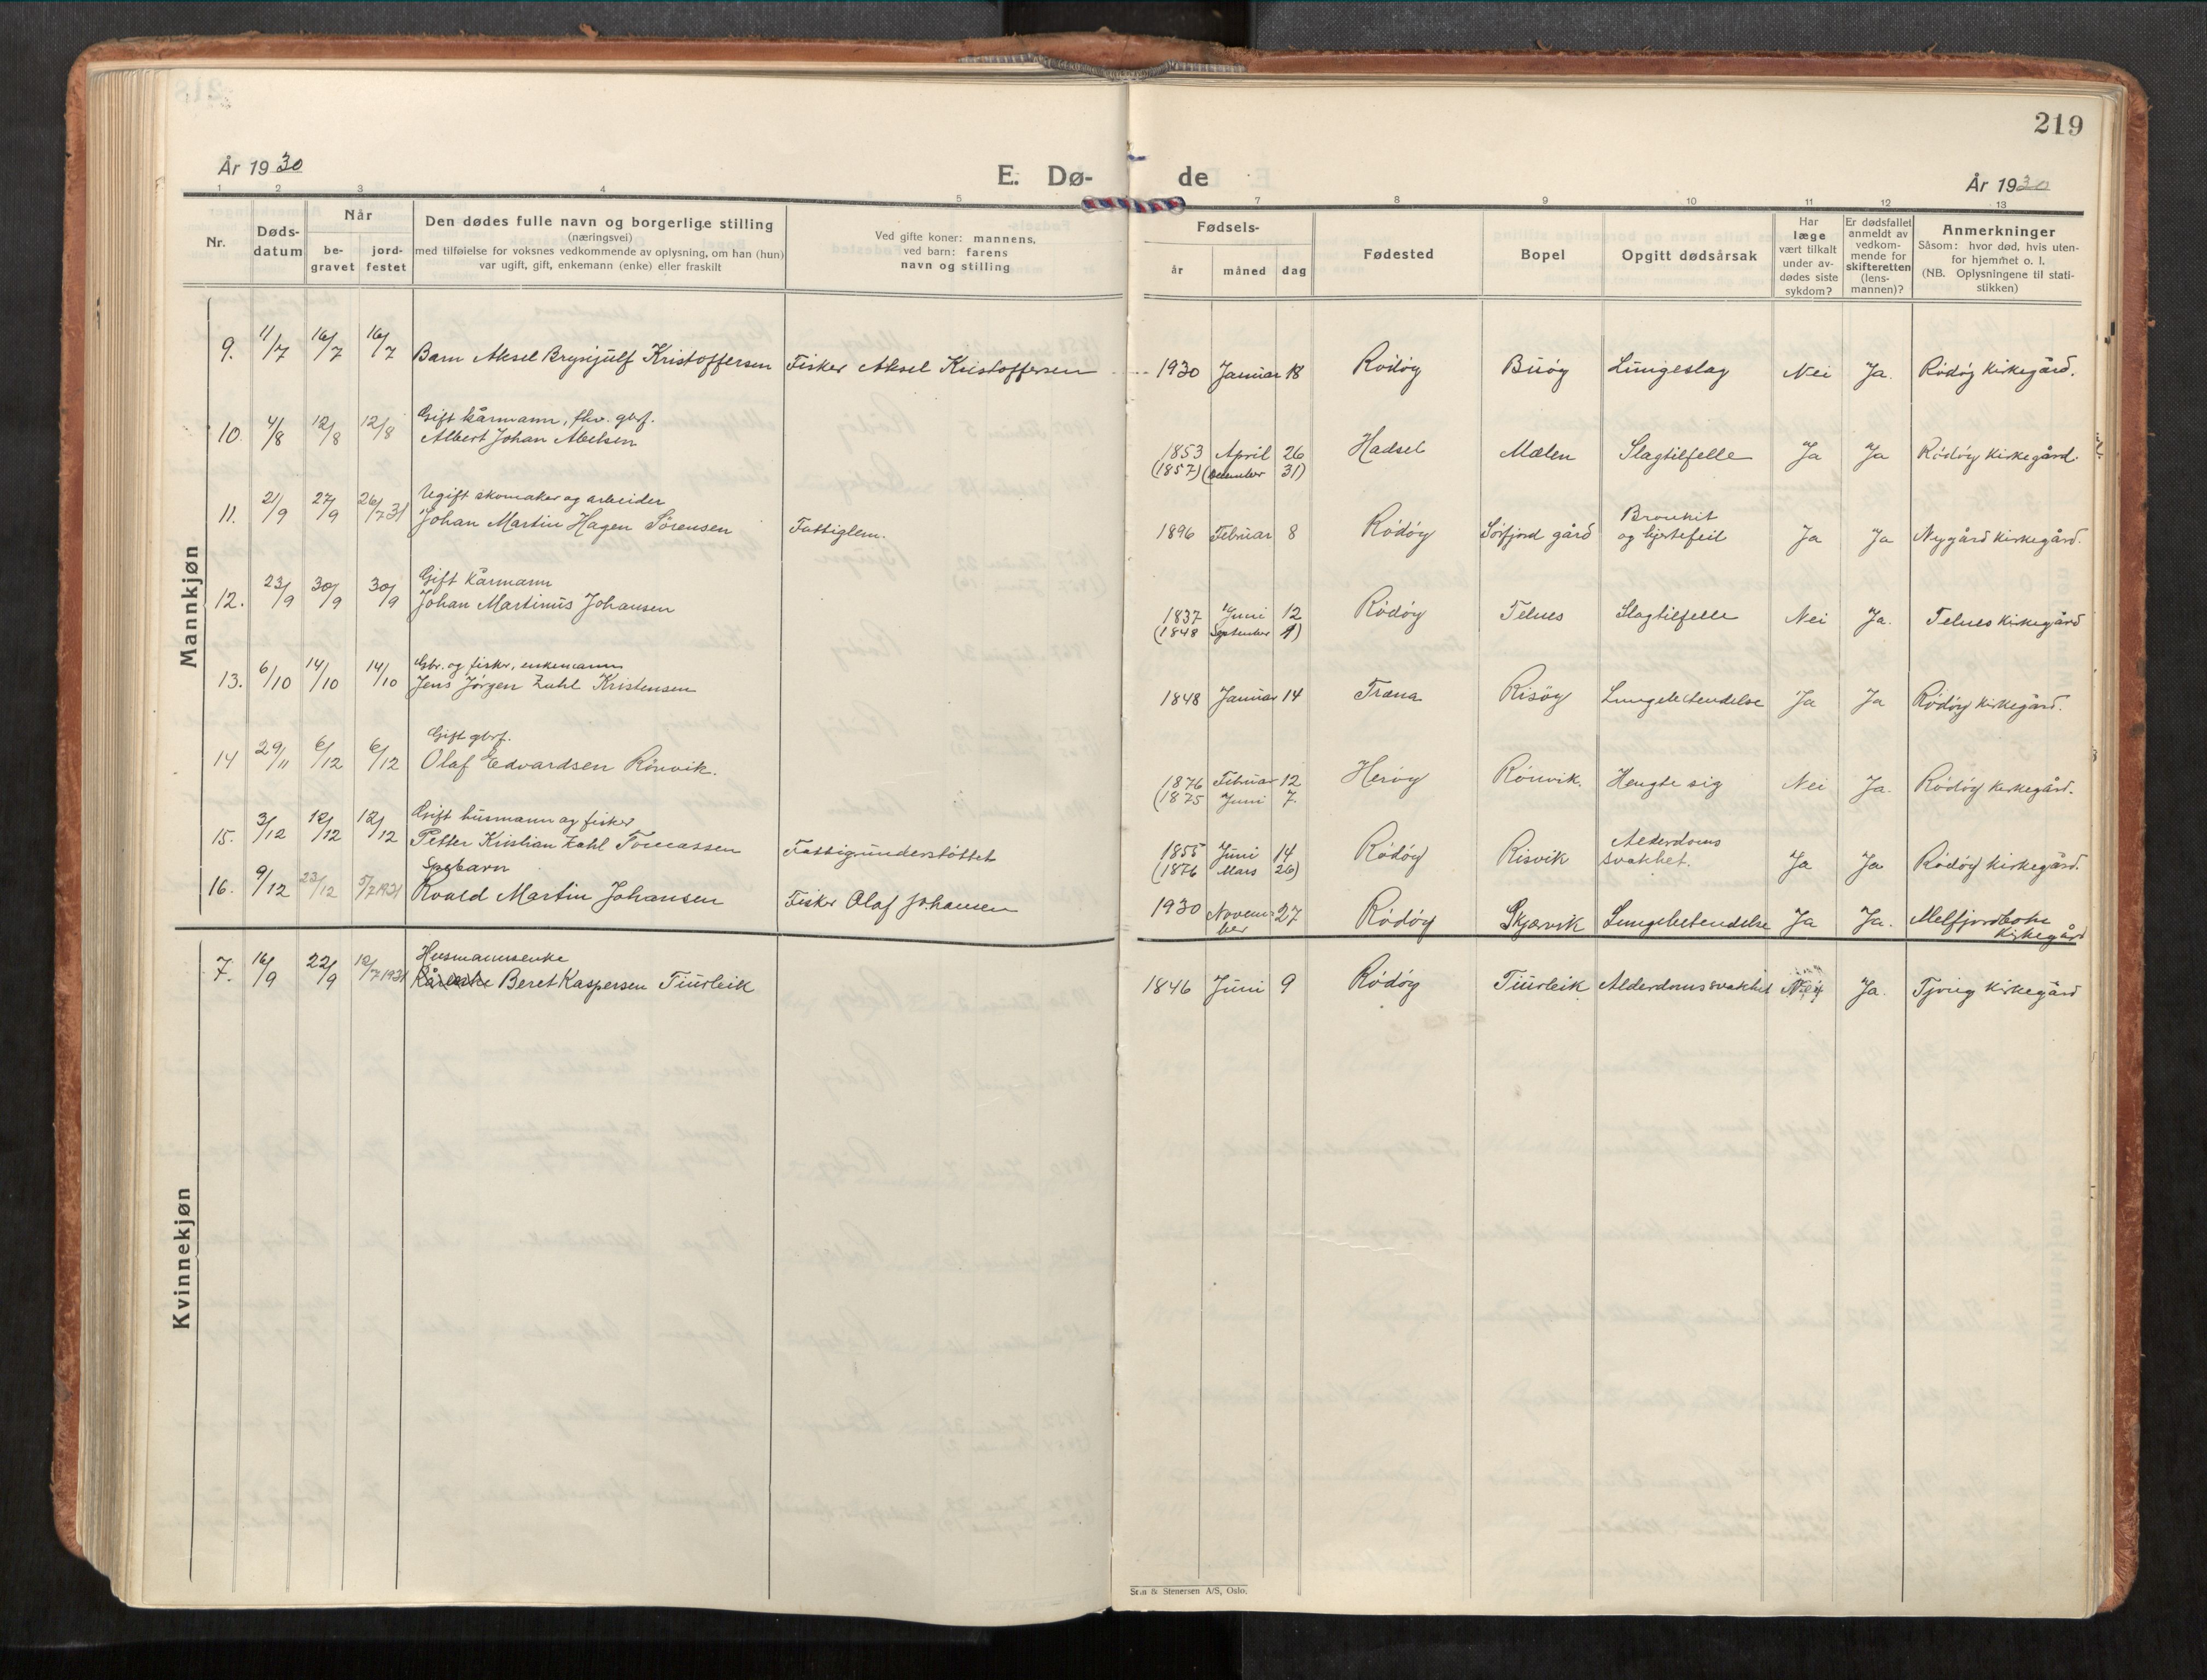 219
År 1930
E. Dø-
de
År 1930
1 2 3 4 5 7 8 9 10 11 12 13
Nr.
Døds-
datum
Når
be-
gravet
jord-
festet
Den dødes fulle navn og borgerlige stilling
(næringsvei)
med tilføielse for voksnes vedkommende av oplysning, om han (hun)
var ugift, gift, enkemann (enke) eller fraskilt
Ved gifte koner: mannens,
ved barn: farens
navn og stilling
Fødsels-
år
måned
dag
Fødested
Bopel
Opgitt dødsårsak
Har
læge
vært tilkalt
under av-
dødes siste
sykdom?
Er dødsfallet
anmeldt av
vedkom-
mende for
skifteretten
(lens-
mannen)?
Anmerkninger
Såsom: hvor død, hvis uten-
for hjemmet o. l.
(NB. Oplysningene til stati-
stikken)
Mannkjøn
9. 11/7 16/7 16/7 Barn Aksel Brynjulf Kristoffersen Fisker Aksel Kristoffersen 1930 Januar 18 Rödöy Buöy Lungeslag Nei Ja. Rödöy kirkegård.
Gift kårmann, fhv. gbrf.
10. 4/8 12/8 12/8 Albert Johan Abelsen 1853 April 26 Hadsel Mælen Slagtilfelle Ja Ja Rödöy kirkegård.
(1857) (December 31)
Ugift skomaker og arbeider
11. 21/9 27/9 26/7 31 Johan Martin Hagen Sörensen Fattiglem. 1896 Februar 8 Rödöy Sörfjord gård Bronkit
og hjertefeil Ja Ja Nygård kirkegård.
Gift Kårmann
12. 23/9 30/9 30/9 Johan Martinus Johansen 1837 Juni 12 Rödöy Telnes Slagtilfelle Nei Ja. Telnes kirkegård
(1848 September 1)
Gbr. og fisker, enkemann
13. 6/10 14/10 14/10 Jens Jörgen Zahl Kristensen 1848 Januar 14 Træna Risöy Lungebetendelse Ja Ja Rödöy kirkegård.
Gift gbrf.
14 29/11 6/12 6/12 Olaf Edvardsen Rönvik. 1876 Februar 12 Heröy Rönvik. Hengte sig Nei Ja. Rödöy kirkegård.
(1875 Juni 7.
Gift husmann og fisker
15. 3/12 12/12 12/12 Petter Kristian Zahl Tomassen Fattigunderstöttet 1855 Juni 14 Rödöy Risvik Alderdoms
svakhet. Ja Ja Rödöy kirkegård.
(1876 Mars 26)
Spebarn
16. 9/12 23/12 5/7 1931 Roald Martin Johansen Fisker Olaf Johansen 1930 Novem-
ber 27 Rödöy Skjærvik Lungebetendelse Ja Ja. Melfjordbotn
kirkegård
Kvinnekjøn
Husmannsenke
7. 16/9 22/9 12/7 1931 Kårenke Beret Kaspersen Tiurleik 1846 Juni 9 Rödöy Tiurleik Alderdomssvakhet Nei Ja. Tjong kirkegård
Sten & Stenersen A/S, Oslo.